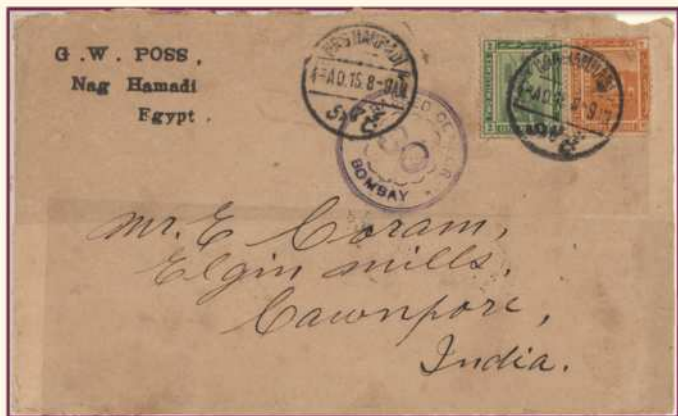 G.W. POSS,
Nag Hamadi
Egypt.
4-AO.15.8-9AM
BOMBAY
Mr. E Coram,
Elgin mills,
Cawnpore,
India.